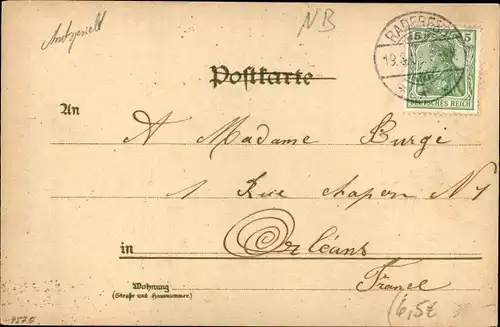 NB
RADEBE
5 5
19.
DEUTSCHES REICH
Postkarte
An
A Madame Burgi
1 Rue chapon N 1
in Orléans
Wohnung
(Straße und Hausnummer)
France